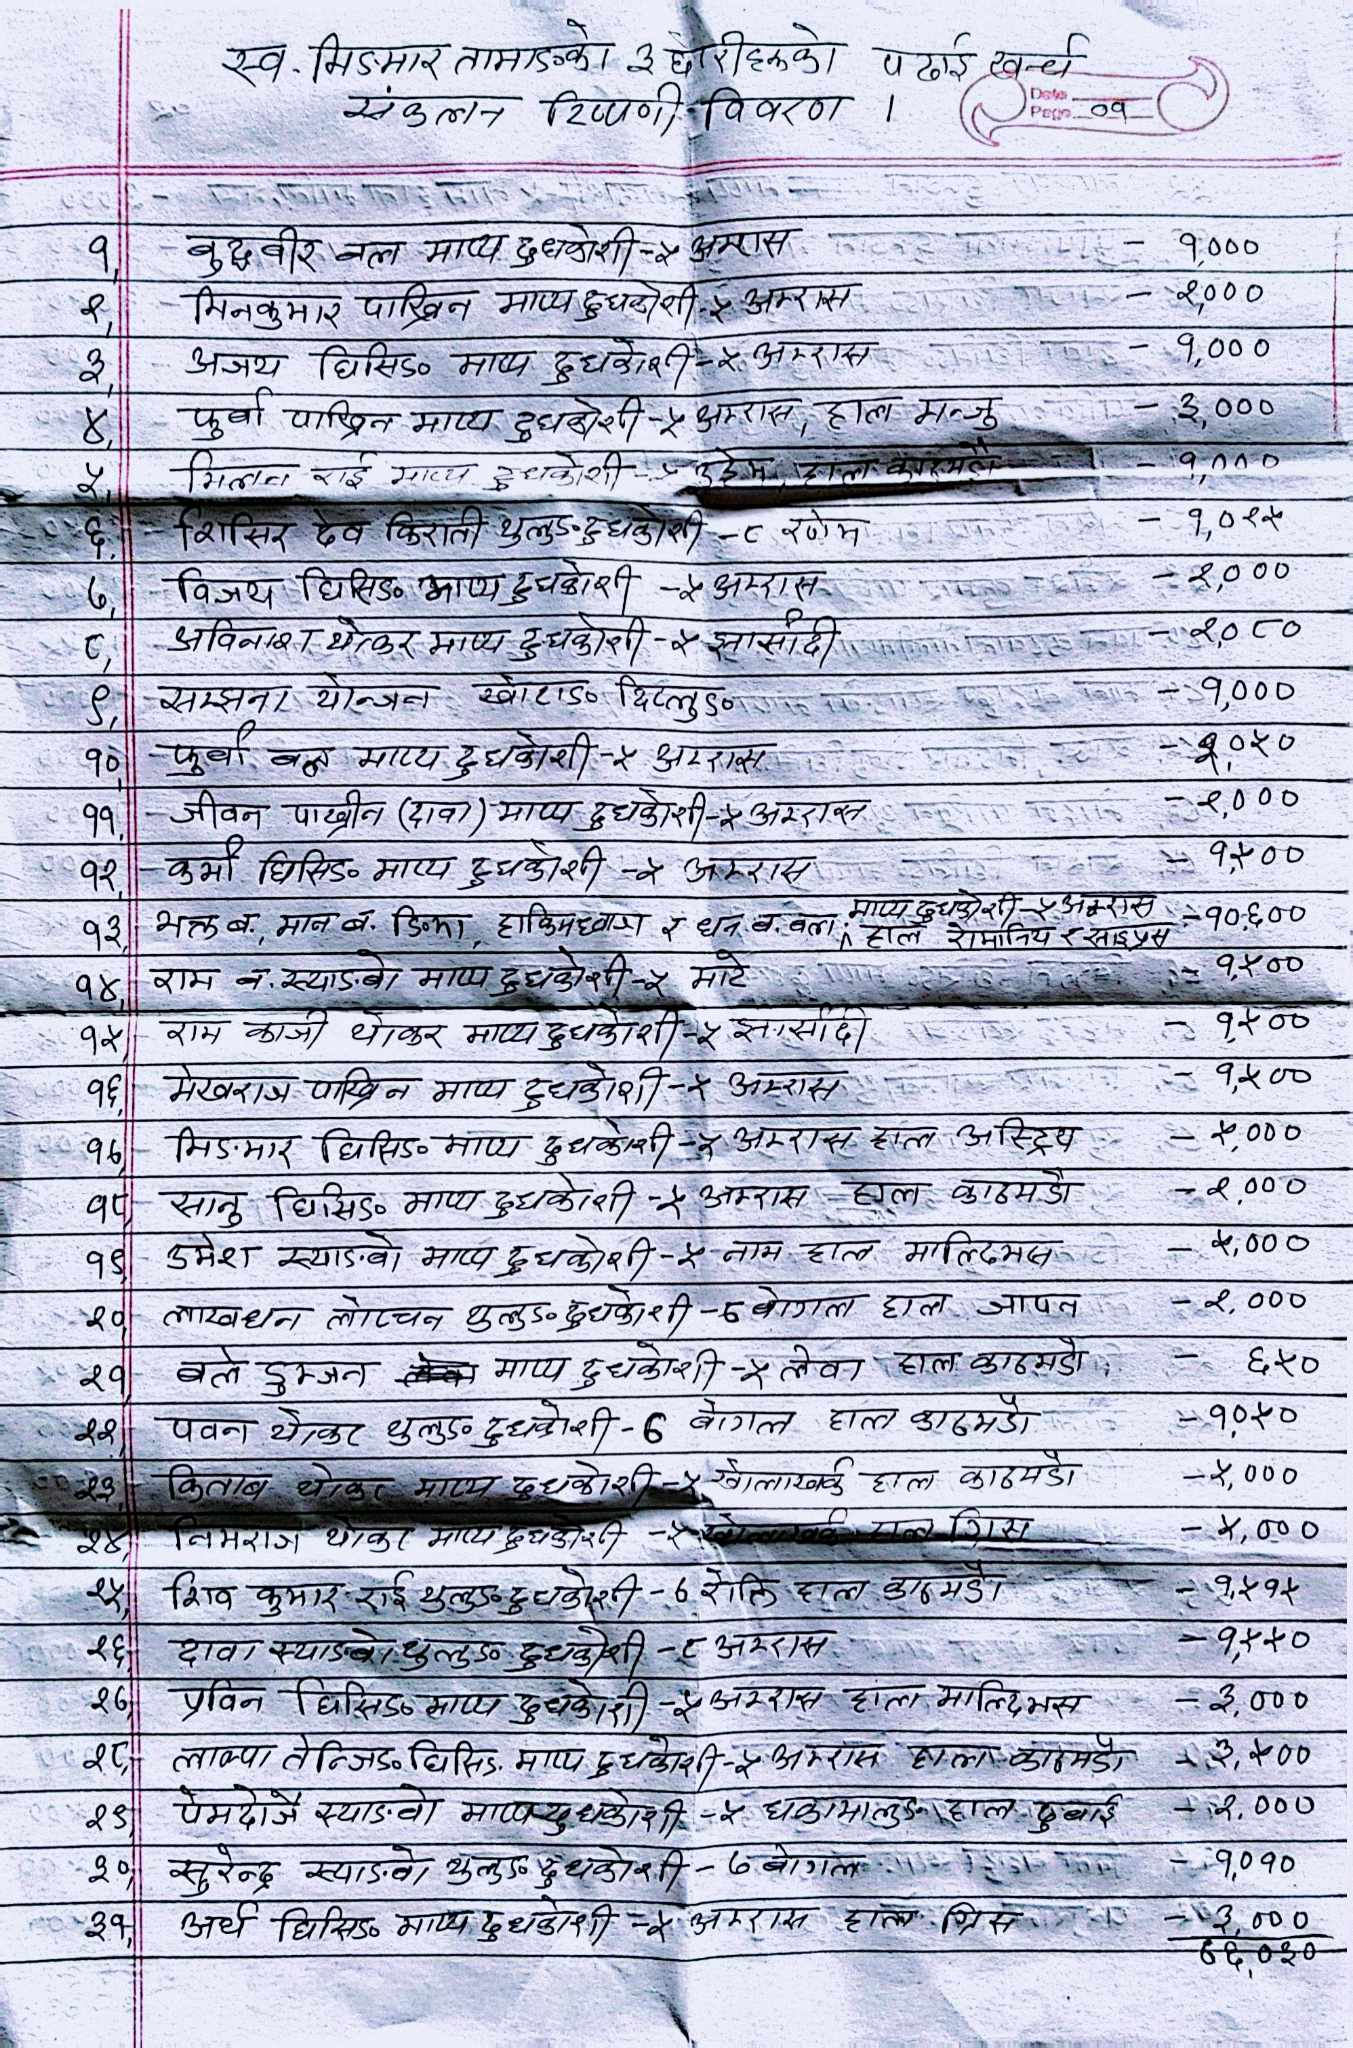 स्व. मिङमार तामाङको ३ छोरीहरुको पढाई खर्च
संकलन टिप्पणी विवरण ।
Date
Page 09
१, बुद्धवीर बल माप्य दुधकोशी-५ अम्रास - १,०००
२, मिनकुमार पाख्रिन माप्य दुधकोशी-५ अम्रास - २,०००
३, अजय घिसिङ माप्य दुधकोशी-५ अम्रास - १,०००
४, फुर्वा पाख्रिन माप्य दुधकोशी-५ अम्रास, हाल मन्जु - ३,०००
५, मिलन राई माप्य दुधकोशी-५ हाल काठमडौ - १,०००
६, शिसिर देव किराती थुलुङ दुधकोशी-८ - १,०२५
७, विजय घिसिङ माप्य दुधकोशी -५ अम्रास - २,०००
८, अविनाश थोकर माप्य दुधकोशी-५ झार्सादी - २,०८०
९, सम्झना योन्जन खोटाङ दिप्लुङ - १,०००
१०, फुर्वा बल माप्य दुधकोशी-५ अम्रास - ०५०
११, जीवन पाख्रीन (दावा) माप्य दुधकोशी-५ अम्रास - २,०००
१२, कर्मा घिसिङ माप्य दुधकोशी -५ अम्रास - १,५००
१३, भक्त ब., मान ब. डिम्का, हाकिमध्वाज र धन. ब. बल, माप्य दुधकोशी-५ अम्रास - १०,६००
हाल रोमानिय र साइप्रस
१४, राम ब. स्याङबो माप्य दुधकोशी-५ माटे - १,५००
१५, राम काजी थोकर माप्य दुधकोशी-५ झार्सादी - १,५००
१६, मेखराज पाख्रिन माप्य दुधकोशी-५ अम्रास - १,५००
१७, मिङमार घिसिङ माप्य दुधकोशी-५ अम्रास हाल अस्ट्रिय - ५,०००
१८, सानु घिसिङ माप्य दुधकोशी-५ अम्रास हाल काठमडौ - २,०००
१९, उमेश स्याङबो माप्य दुधकोशी-५ नाम हाल माल्दिभस - ५,०००
२०, लाखधन लोप्चन थुलुङ दुधकोशी-७ बोगल हाल जापन - २,०००
२१, बले डुम्जन माप्य दुधकोशी-५ लेवा हाल काठमडौ - ६५०
२२, पवन थोकर थुलुङ दुधकोशी-७ बोगल हाल काठमडौ - १,०५०
२३, किताब थोकर माप्य दुधकोशी-५ खोलाखर्क हाल काठमडौ - ५,०००
२४, निमराज थोकर माप्य दुधकोशी -५ खोलाखर्क हाल ग्रिस - ५,०००
२५, शिव कुमार राई थुलुङ दुधकोशी-७ हाल काठमडौ - १,५१५
२६, दावा स्याङबो थुलुङ दुधकोशी-८ अम्रास - १,५५०
२७, प्रविन घिसिङ माप्य दुधकोशी-५ अम्रास हाल माल्दिभस - ३,०००
२८, लाक्पा तेन्जिङ घिसिङ माप्य दुधकोशी-५ अम्रास हाल काठमडौ - ३,५००
२९, पेमदोर्जे स्याङबो माप्य दुधकोशी -५ हाल दुबाई - २,०००
३०, सुरेन्द्र स्याङबो थुलुङ दुधकोशी-७ बोगल - १,०१०
३१, अर्थ घिसिङ माप्य दुधकोशी-५ अम्रास हाल ग्रिस - ३,०००
७६,०३०